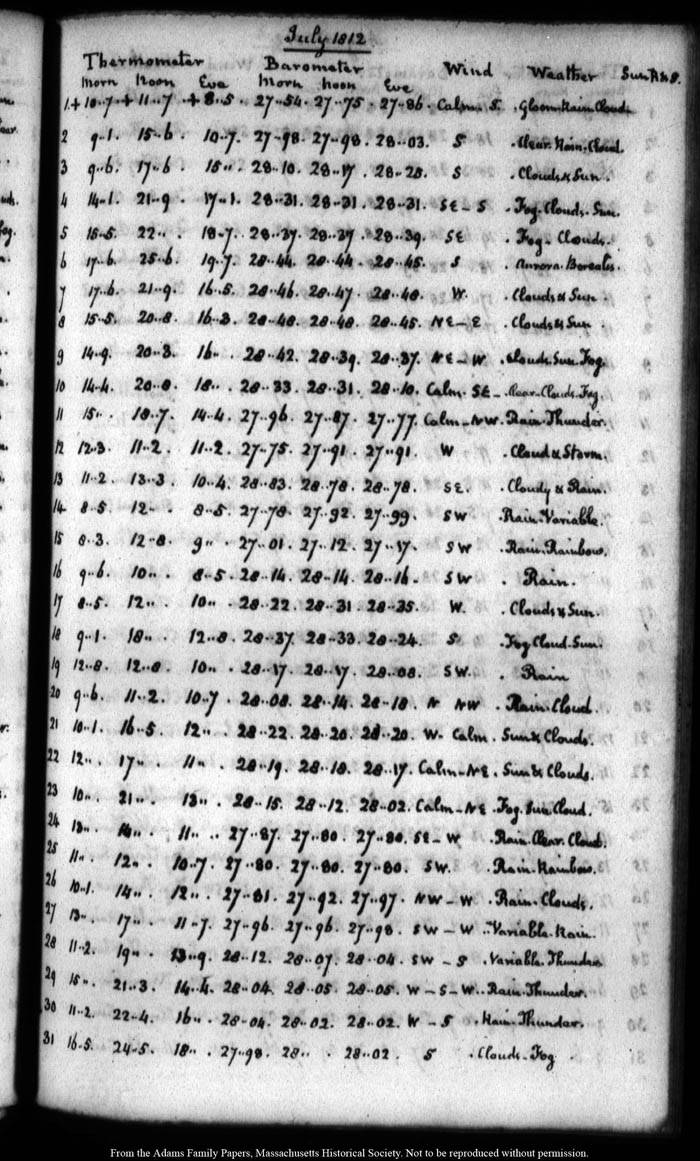 July 1812
Thermometer Barometer Wind Weather Sun R & S.
Morn Noon Eve Morn Noon Eve
1. + 10..7 + 11..7 + 8..5. 27..54. 27..75. 27..86. Calm. S. . Gloom. Rain. Clouds
2 9..1. 15..6. 10..7. 27..98. 27..98. 28..03. S . Clear. Rain. Cloud.
3 9..6. 17..6. 15.. . 28..10. 28..17. 28..28. S . Clouds & Sun.
4 14..1. 21..9. 17..1. 28..31. 28..31. 28..31. SE – S . Fog. Clouds. Sun.
5 15..5. 22.. . 18..7. 28..37. 28..37. 28..39. SE . Fog. Clouds.
6 17..6. 25..6. 19..7. 28..44. 28..44. 28..45. S . Aurora Borealis.
7 17..6. 21..9. 16..5. 28..46. 28..47. 28..48. W. . Clouds & Sun.
8 15..5. 20..8. 16..3. 28..48. 28..48. 28..45. NE – E . Clouds & Sun
9 14..9. 20..3. 16.. . 28..42. 28..39. 28..37. NE – W . Clouds. Sun. Fog.
10 14..4. 20..8. 18.. . 28..33. 28..31. 28..10. Calm. SE – . Clear. Clouds. Fog.
11 15.. . 18..7. 14..4. 27..96. 27..87. 27..77. Calm – NW. Rain. Thunder.
12 12..3. 11..2. 11..2. 27..75. 27..91. 27..91. W . Cloud & Storm.
13 11..2. 13..3. 10..4. 28..83. 28..78. 28..78. SE. . Cloudy & Rain.
14 8..5. 12.. . 8..5. 27..78. 27..92. 27..99. SW . Rain. Variable.
15 8..3. 12..8. 9.. . 27..01. 27..12. 27..17. SW . Rain. Rainbow.
16 9..6. 10.. . 8..5. 28..14. 28..14. 28..16. SW . Rain.
17 8..5. 12.. . 10.. . 28..22. 28..31. 28..35. W. . Clouds & Sun.
18 9..1. 18.. . 12..8. 28..37. 28..33. 28..24. S . Fog. Cloud. Sun.
19 12..8. 12..8. 10.. . 28..17. 28..17. 28..08. SW. . Rain
20 9..6. 11..2. 10..7. 28..08. 28..14. 28..18. N NW . Rain. Cloud.
21 10..1. 16..5. 12.. . 28..22. 28..20. 28..20. W. Calm. Sun & Clouds.
22 12.. . 17.. . 11.. . 28..19. 28..18. 28..17. Calm – NE. Sun & Clouds.
23 10.. . 21.. . 13.. . 28..15. 28..12. 28..02. Calm – NE. Fog. Sun. Cloud.
24 13.. . 14.. . 11.. . 27..87. 27..80. 27..80. SE – W . Rain. Clear. Cloud.
25 11.. . 12.. . 10..7. 27..80. 27..80. 27..80. SW. . Rain. Rainbow.
26 10..1. 14.. . 12.. . 27..81. 27..92. 27..97. NW – W . Rain. Clouds.
27 13.. . 17.. . 11..7. 27..96. 27..96. 27..98. SW – W. Variable. Rain.
28 11..2. 19.. . 13..9. 28..12. 28..07. 28..04. SW – S . Variable. Thunder
29 15.. . 21..3. 14..4. 28..04. 28..05. 28..05. W – S – W. Rain. Thunder.
30 11..2. 22..4. 16.. . 28..04. 28..02. 28..02. W – S . Rain. Thunder.
31 16..5. 24..5. 18.. . 27..98. 28.. . 28..02. S . Clouds. Fog.
From the Adams Family Papers, Massachusetts Historical Society. Not to be reproduced without permission.